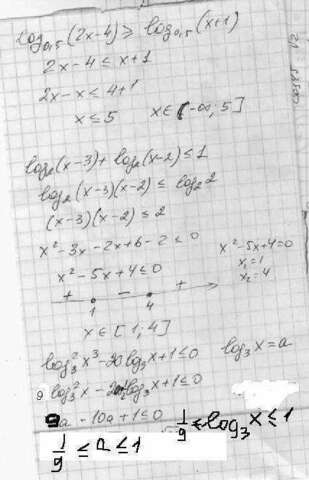 log₀,₅(2x-4) ≥ log₀,₅(x+1)
2x-4 ≤ x+1
2x-x ≤ 4+1
x ≤ 5   x∈[-∞; 5]
log₂(x-3) + log₂(x-2) ≤ 1
log₂(x-3)(x-2) ≤ log₂2
(x-3)(x-2) ≤ 2
x²-3x-2x+6-2 ≤ 0
x²-5x+4=0
x²-5x+4 ≤ 0
x₁=1
x₂=4
+ - +
1 4
x∈[1, 4]
log₃²x³-20log₃x+1 ≤ 0   log₃x=a
9log₃²x-log₃x+1 ≤ 0
9a-10a+1 ≤ 0
1/9 ≤ log₃x ≤ 1
1/9 ≤ a ≤ 1